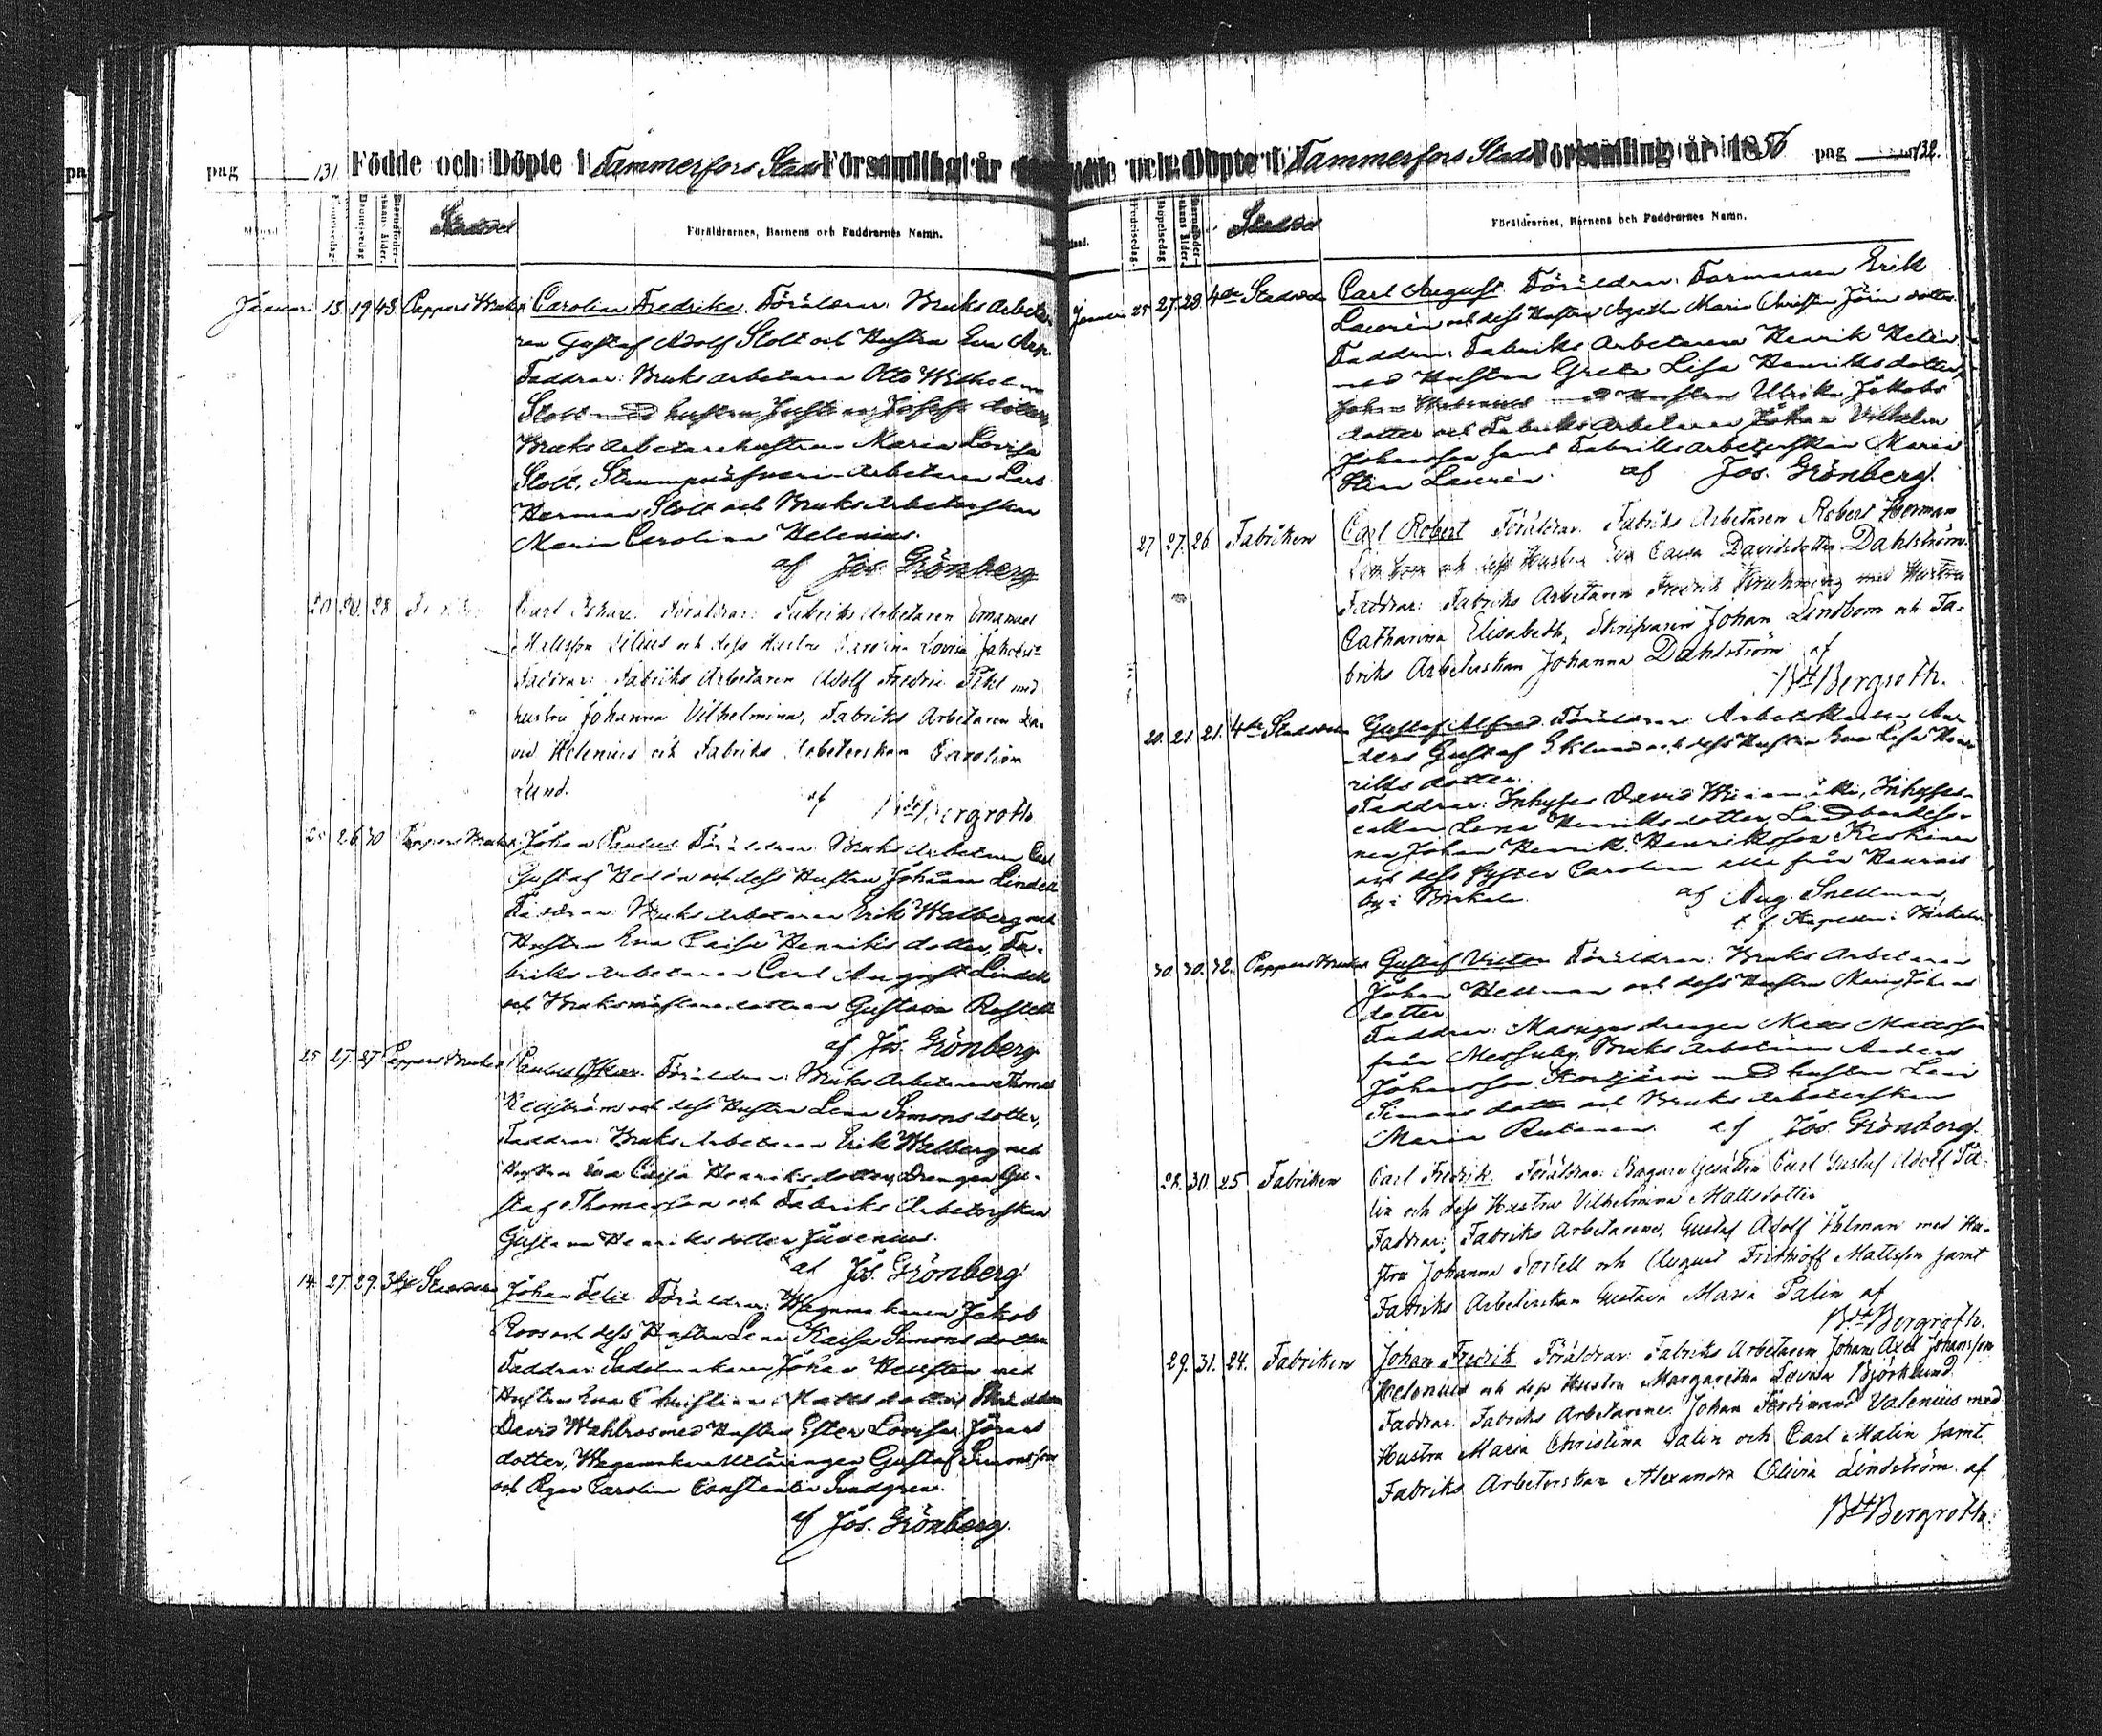 pag 131 Födde och Döpte i Tammerfors Stads Församling år
Födelsedag. Döpelsedag Barnaföderskans ålder. Föräldrarnes, Barnens och Faddrarnes Namn.
Januari 13 19 43 Pappers Bruket Carolina Fredrika. Föräldrar: Bruks Arbeta-
ren Gustaf Adolf Stolt och Hustru Eva
Faddrar: Bruks Arbetaren Otto Wilhelm
Stolt med hustru Justina Josefs dotter,
Bruks Arbetarehustrun Maria Lovisa
Stolt, Arbetaren Lars
Herman Stolt och Bruks Arbeterskan
Maria Carolina Helenius.
af Jos. Grönberg
20 20. 28 Carl Oskar. Föräldrar: Fabriks Arbetaren Emanuel
Mattsson Silius och dess Hustru Carolina Lovisa
Faddrar: Fabriks Arbetaren Adolf Fredric med
hustru Johanna Vilhelmina, Fabriks Arbetaren Da-
vid Helenius och Fabriks Arbeterskan Carolina
Lund. af Bergroth
26 30 Pappers Bruket Johan Paulus Föräldrar: Bruks Arbetaren Carl
Gustaf Hedén och dess Hustru Johanna Lindell
Faddrar: Bruks Arbetaren Erik Walberg med
Hustru Eva Caisa Henriks dotter, Fa-
briks Arbetaren Carl August Lindell
och Gustava
af Jos. Grönberg
25 27. 27 Pappers Bruket Paulus Oskar. Föräldrar: Bruks Arbetaren Thomas
Hellström och dess Hustru Lena Simons dotter,
Faddrar: Bruks Arbetaren Erik Walberg med
Hustru Eva Caisa Henriks dotter, Drengen Gu-
staf Thomasson och Fabriks Arbeterskan
Gustava Henriks dotter Juvenius.
af Jos. Grönberg
14. 27. 29. 3dje Stadsdelen Johan Felix Föräldrar: Wagnmakaren Jakob
Roos och dess Hustru Lena Kaisa Simons dotter
Faddrar: Sadelmakaren Johan med
Hustru Eva Christina Matts dotter,
David Wahlroos med Hustru Ester Lovisa Jörans
dotter, Wagnmakare Gustaf Simonsson
och Pigan Carolina Constantia Sundgren.
af Jos. Grönberg.
Födde och Döpte i Tammerfors Stads Församling år 1856 pag 132.
Födelsedag. Döpelsedag Barnaföderskans ålder. Föräldrarnes, Barnens och Faddrarnes Namn.
Januari 25 27. 28 4de Stadsdelen Carl August. Föräldrar: Formannen Erik
Laurén och dess Hustru Agatha Maria Christina Jöransdotter
Faddrar: Fabriks Arbetaren Henrik Helén
med Hustru Greta Lisa Henriksdotter,
Johan med Hustru Ulrika Jakobs
dotter och Fabriks Arbetaren Johan Vilhelm
Johansson samt Fabriks Arbeterskan Maria
Stina Laurén. af Jos. Grönberg.
27 27. 26 Fabriken Carl Robert Föräldrar: Fabriks Arbetaren Robert Herman
och dess Hustru Eva Caisa Davidsdotter Dahlström.
Faddrar: Fabriks Arbetaren Fredrik med Hustru
Catharina Elisabeth, Skrifvaren Johan Lindbom och Fa-
briks Arbeterskan Johanna Dahlström af
Bergroth.
20. 21. 21. 4de Stadsdelen Gustaf Alfred. Föräldrar: Arbetskarlen An-
ders Gustaf Eklund och dess Hustru Eva Lisa Hen-
riks dotter.
Faddrar: Inhyses David Inhyses-
enkan Lena Henriksdotter, Landbondeso-
nen Johan Henrik Henriksson Keskinen
och dess Syster Carolina alla från
by i Birkala. af Aug. Snellman,
t.f. Kapellan i Birkala.
30. 30. 32. Pappers Bruket Gustaf Victor Föräldrar: Bruks Arbetaren
Johan Hellman och dess Hustru Maria Johans
dotter
Faddrar: Drengen Matts Mattsson
från Messuby, Bruks Arbetaren Anders
Johansson med hustru Lena
Simons dotter och Bruks Arbeterskan
Maria af Jos. Grönberg.
28. 30. 25. Fabriken Carl Fredrik. Föräldrar: Gesällen Carl Gustaf Adolf Pa-
lin och dess Hustru Vilhelmina Mattsdotter
Faddrar: Fabriks Arbetarene, Gustaf Adolf Öhlman med Hu-
stru Johanna och August Frithioff Mattsson samt
Fabriks Arbeterskan Gustava Maria Palin af
Bergroth.
29. 31. 24. Fabriken Johan Fredrik Föräldrar: Fabriks Arbetaren Johan Axel Johansson
Helenius och dess Hustru Margaretha Lovisa Björklund
Faddrar: Fabriks Arbetarene Johan Ferdinand Valenius med
Hustru Maria Christina Salin och Carl Malin samt
Fabriks Arbeterskan Alexandra Olivia Lindström. af
Bergroth.